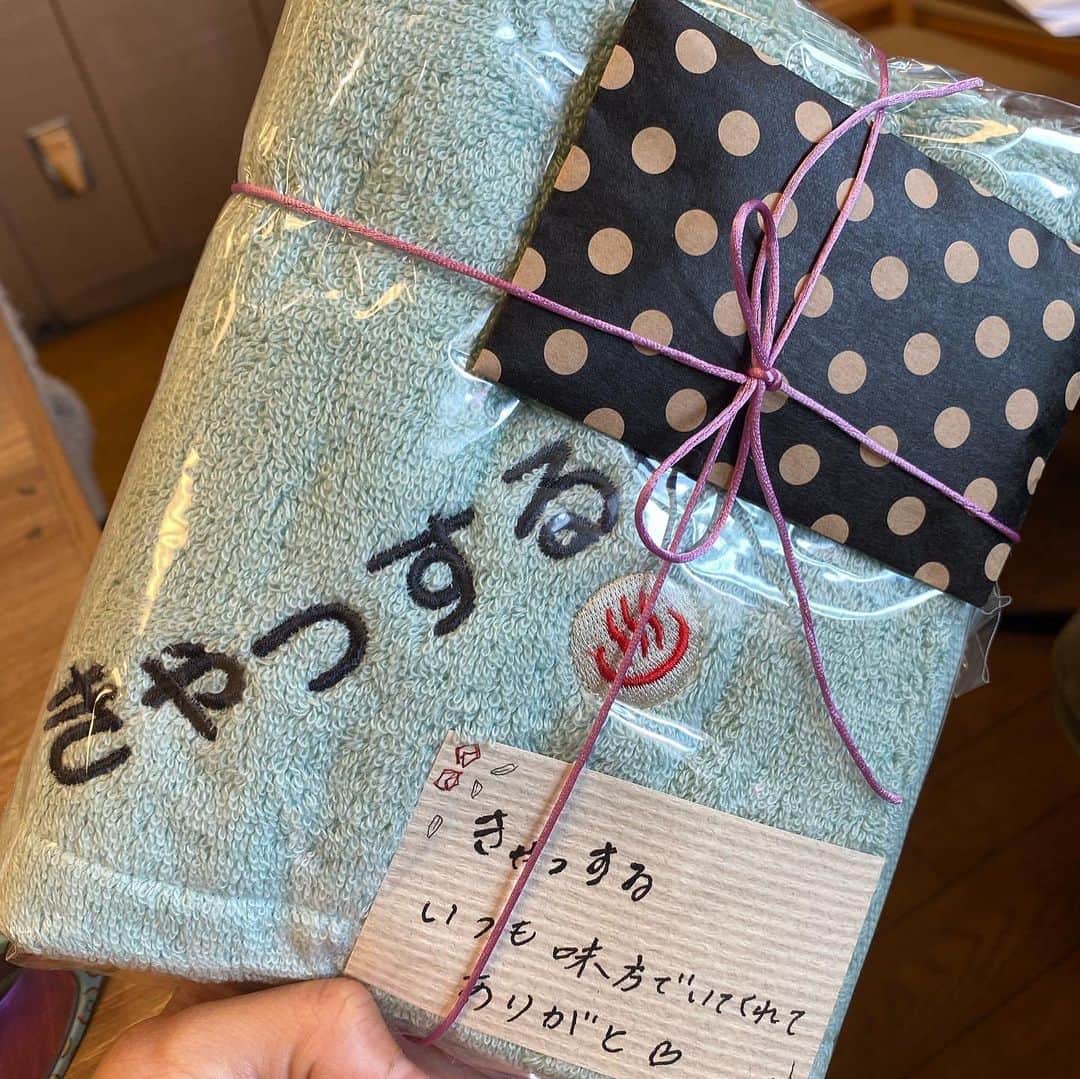 きゃつする
きゃっする
いつも味方でいてくれて
ありがと♡